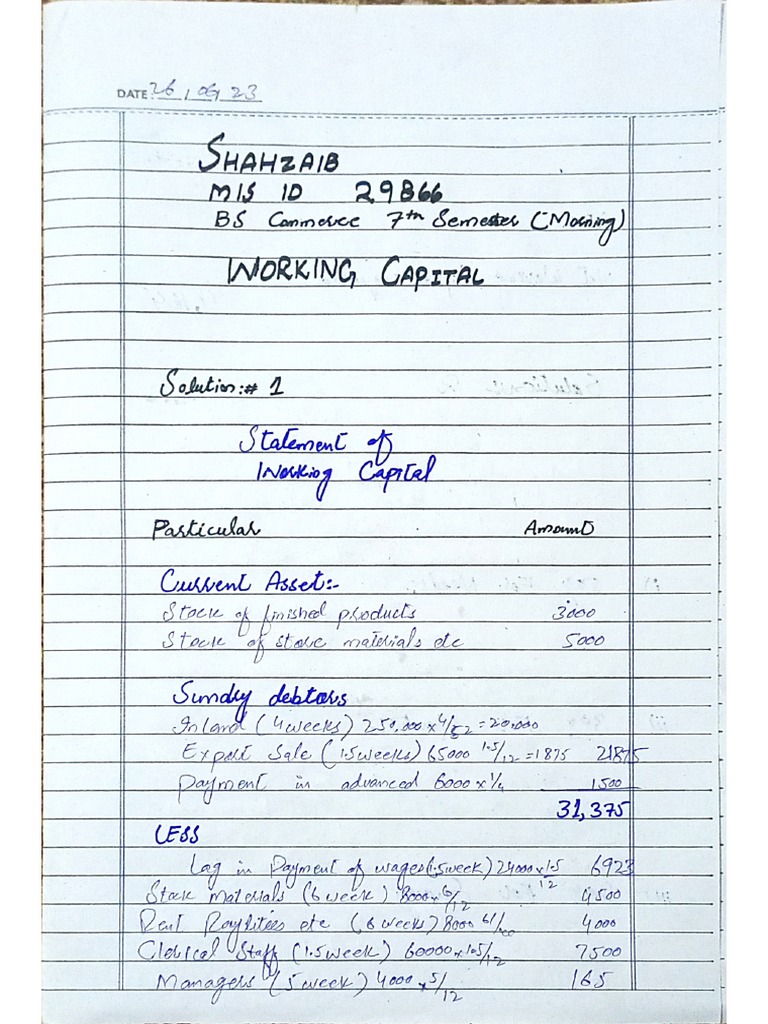 DATE: 26 / 06 / 23
SHAHZAIB
MIS ID 29866
BS Commerce 7th Semester (Morning)
WORKING CAPITAL
Solution:# 1
Statement of
Working Capital
Particular Amount
Current Asset:-
Stock of finished products 3000
Stock of store materials etc 5000
Sundry debtors
Inland (4 weeks) 250,000 x 4/52 = 20,000
Export Sale (1.5 weeks) 65000 1.5/12 = 1875 21875
Payment in advanced 6000 x 1/4 1500
31,375
LESS
Lag in Payment of wages (1.5 week) 24000 x 1.5/12 6923
Stock Materials (6 week) 8000 x 6/12 4500
Rent Roylities etc (6 weeks) 8000 4000
Clerical Staff (1.5 week) 60000 x 1.5/12 7500
Managers (5 week) 4000 x 5/12 165